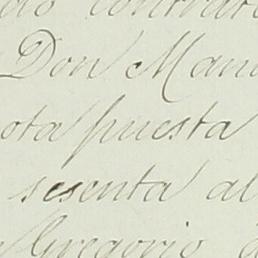 Don Man
ota puesta
sesenta al
Gregorio